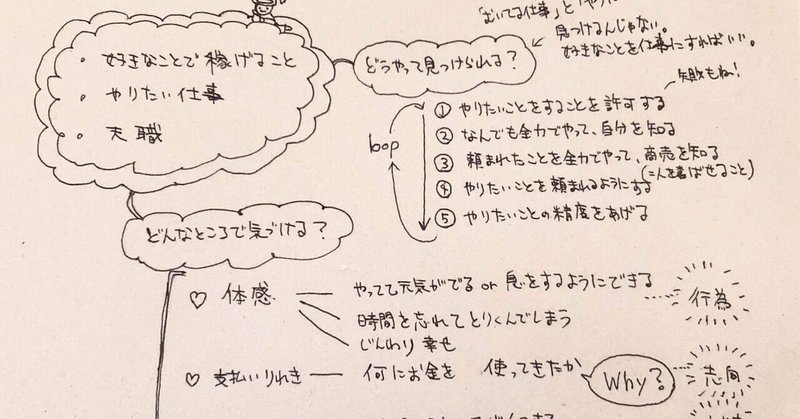 「むいてる仕事」と「やりた
見つけるんじゃない。
好きなことを仕事にすればいい。
・好きなことで稼げること
・やりたい仕事
・天職
どうやって見つけられる?
失敗もね!
loop
① やりたいことをすることを許可する
② なんでも全力でやって、自分を知る
③ 頼まれたことを全力でやって、商売を知る
(=人を喜ばせること)
④ やりたいことを頼まれるようにする
⑤ やりたいことの精度をあげる
どんなところで気づける?
♡ 体感
やってて元気がでる or 息をするようにできる
行為
時間を忘れてとりくんでしまう
じんわり幸せ
♡ 支払いりれき
何にお金を 使ってきたか
Why?
志向